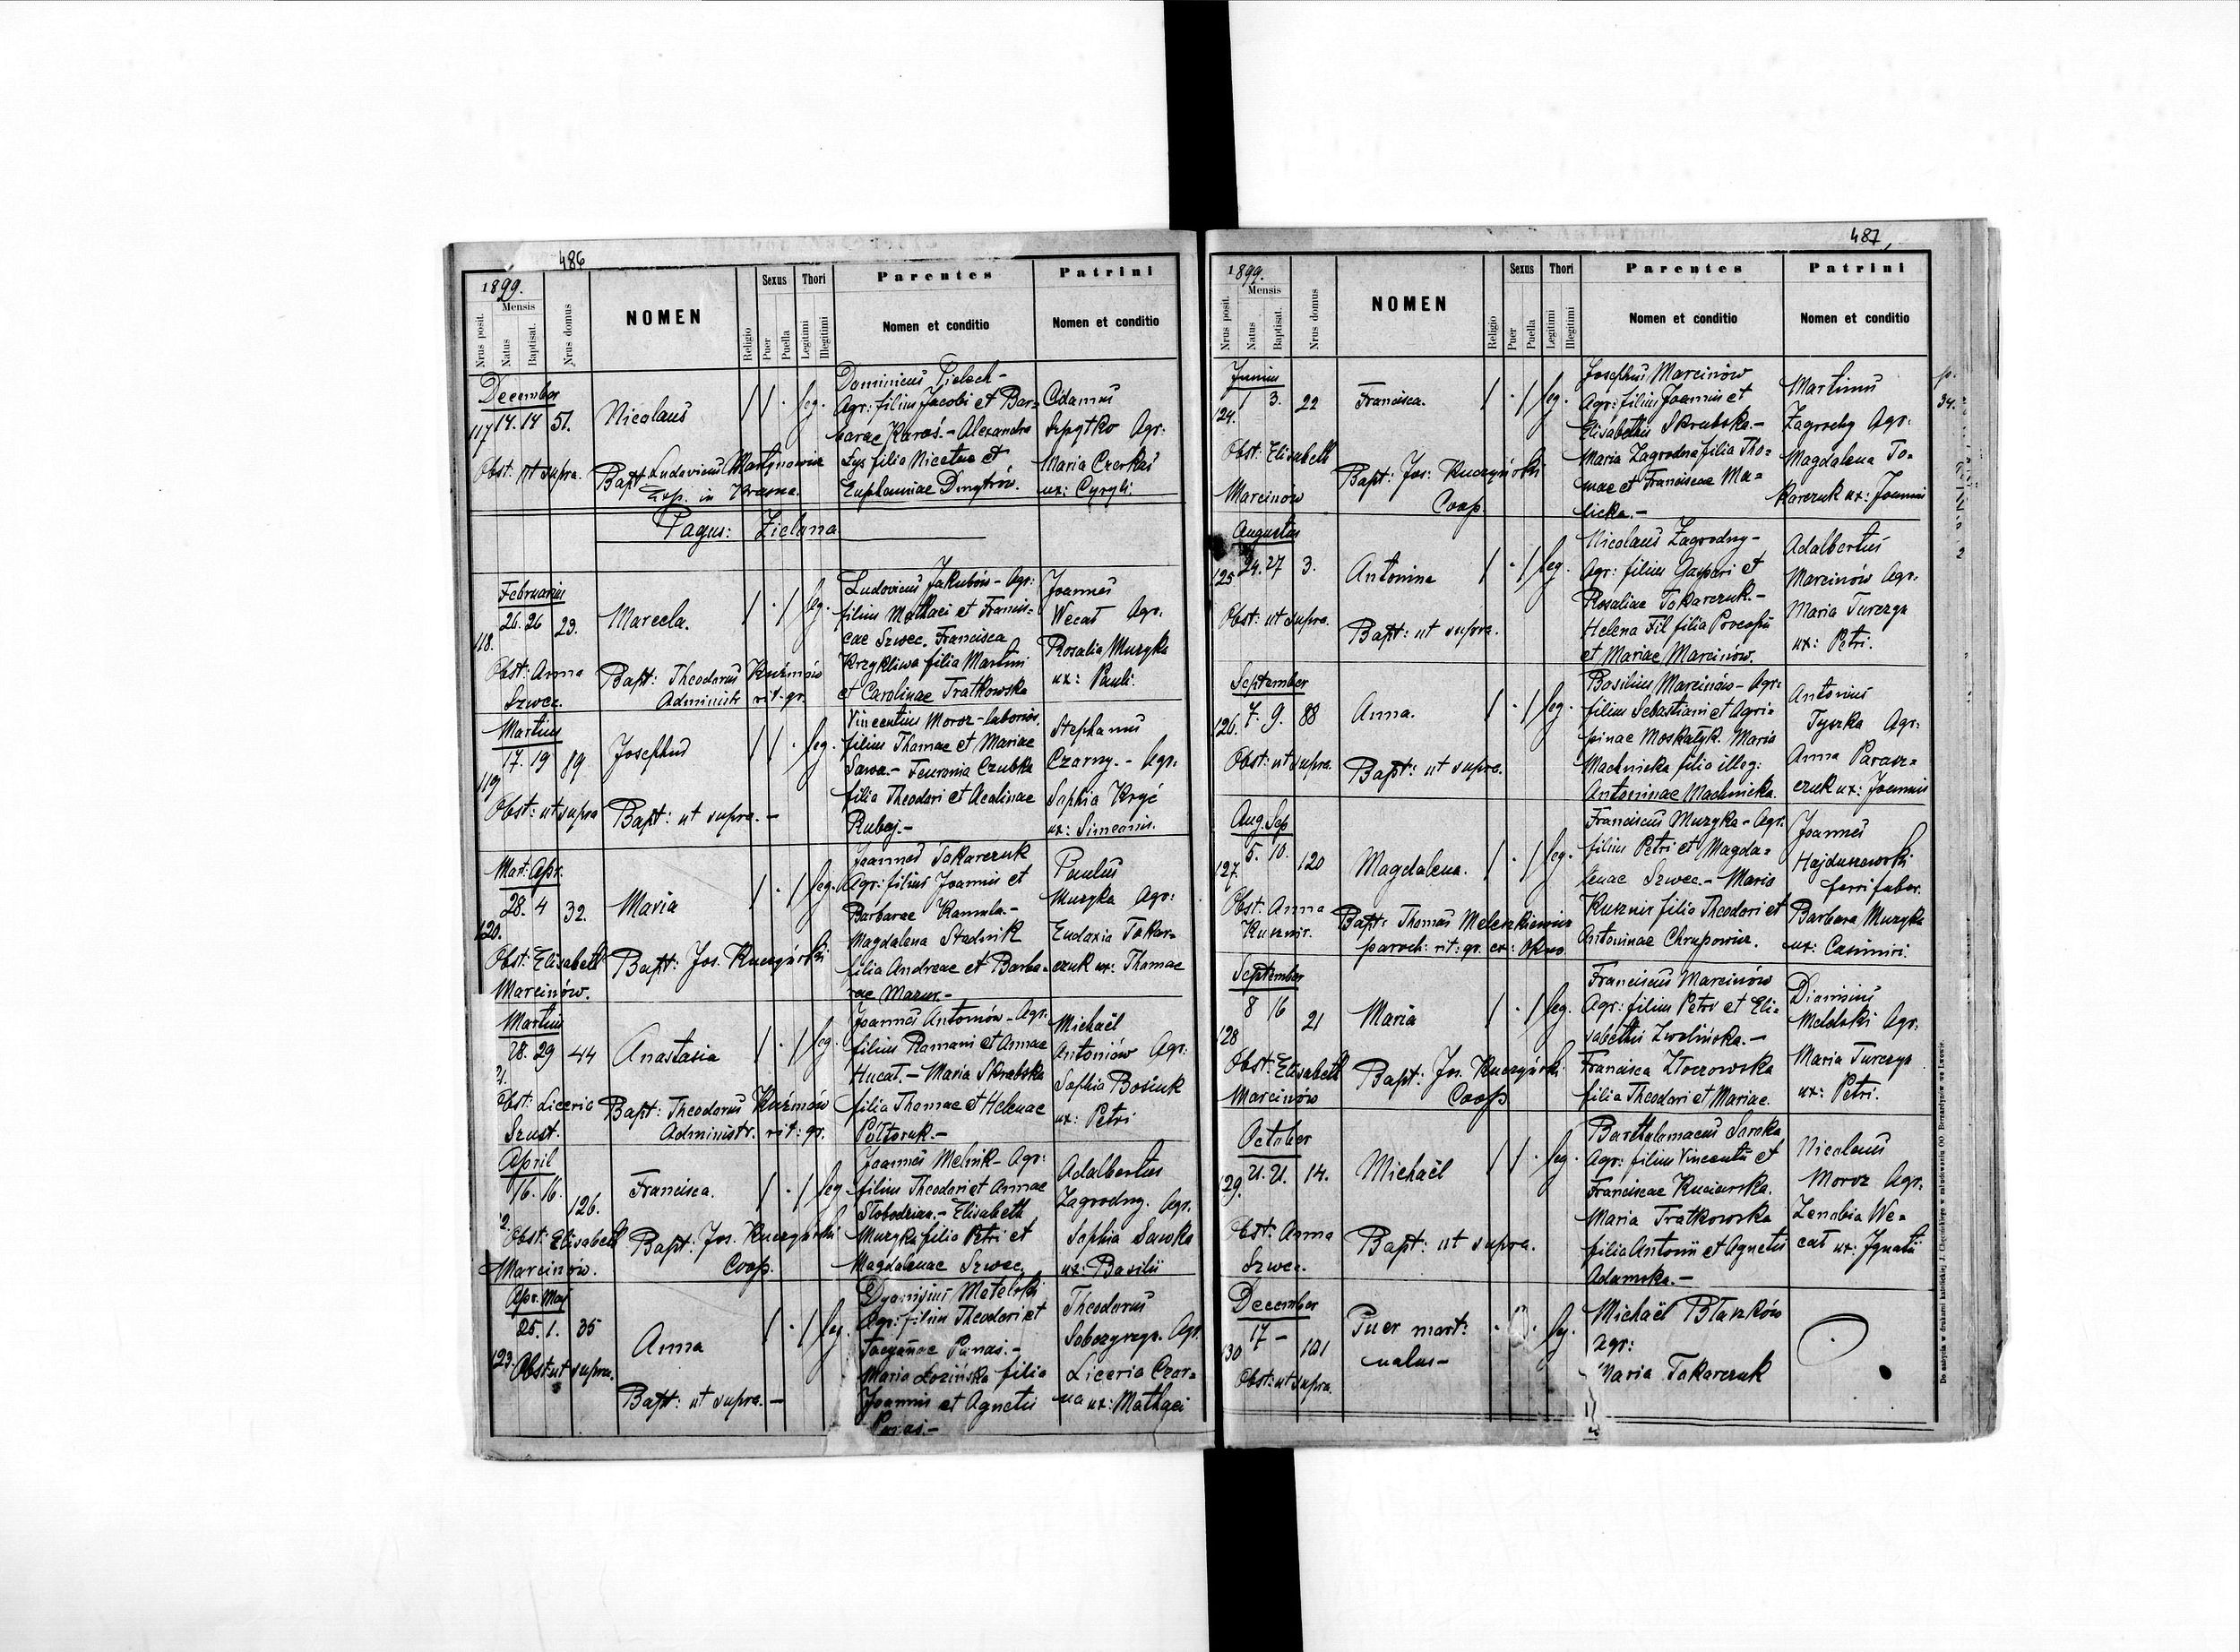 486
1899.
Mensis
Nrus posit.
Natus
Baptisat.
Nrus domus
NOMEN
Religio
Sexus
Puer
Puella
Thori
Legitimi
Illegitimi
Parentes
Nomen et conditio
Patrini
Nomen et conditio
December
117 14. 14 51.
Nicolaus
leg.
Dominicus
Agr: filius Jacobi et Bar-
barae Karaś. - Alexandra
Lys filia Nicetae et
Euphamiae Dmytrów.
Adamus
Szpytko Agr:
Maria Czerkaś
ux: Cyryli.
Obst: ut supra.
Bapt: Ludovicus Martynowicz
Exp. in Krasne.
Pagus: Zielona
Februarius
26. 26 23.
118.
Marcela.
leg.
Ludovicus Jakubów - Agr:
filius Mathaei et Francis-
cae Szwec. Francisca
Krzykliwa filia Martini
et Carolinae Tratkowska
Joannes
Wecał Agr.
Rosalia Muzyka
ux: Pauli.
Obst: Anna
Szwec.
Bapt: Theodorus Kuźmów
Administr rit: gr.
Martius
17. 19 89.
119
Josephus
leg.
Vincentius Moroz - laborios.
filius Thomae et Mariae
Sawa. - Feuronia Czubka
filia Theodori et Acalinae
Rubaj. -
Stephanus
Czarny. - Agr:
Sophia Kryć
ux: Simeonis.
Obst: ut supra
Bapt: ut supra. -
Mart: Apr.
28. 4 32.
120.
Maria
leg.
Joannes Tokarczuk
Agr: filius Joannis et
Barbarae Kamula. -
Magdalena Stadnik
filia Andreae et Barba-
rae Mazur. -
Paulus
Muzyka Agr:
Eudoxia Tokar-
czuk ux: Thomae
Obst: Elisabeth
Marcinów.
Bapt: Jos. Kuczyński
Martius
28. 29 44
21.
Anastasia
leg.
Joannes Antoniów - Agr:
filius Romani et Annae
Hucał. - Maria Skrabska
filia Thomae et Helenae
Połtoruk. -
Michaël
Antoniów Agr:
Sophia Bosiuk
ux: Petri
Obst: Liceria
Szust.
Bapt: Theodorus Kuźmów
Administr. rit: gr.
April
16. 16. 126.
2.
Francisca.
leg
Joannes Melnik - Agr:
filius Theodori et Annae
Słobodzian. - Elisabeth
Muzyka filia Petri et
Magdalenae Szwec.
Adalbertus
Zagrodny. Agr.
Sophia Sawka
ux: Basilii
Obst: Elisabeth
Marcinów.
Bapt: Jos. Kuczyński
Coop.
Apr. May
25. 1. 35
123.
Anna
leg.
Dyonisius Metelski
Agr: filius Theodori et
Tacyannae Panas. -
Maria Łozińska filia
Joannis et Agnetis
Panas. -
Theodorus
Liceria Czar-
na ux: Mathaei
Obst: ut supra.
Bapt: ut supra. -
487
1899.
Mensis
Nrus posit.
Natus
Baptisat.
Nrus domus
NOMEN
Religio
Sexus
Puer
Puella
Thori
Legitimi
Illegitimi
Parentes
Nomen et conditio
Patrini
Nomen et conditio
Junius
1 3. 22
124.
Francisca.
leg.
Josephus Marcinów
Agr: filius Joannis et
Elisabethis Skrabska. -
Maria Zagrodna filia Tho-
mae et Franciscae Ma-
licka. -
Martinus
Zagrodny Agr.
Magdalena To-
karczuk ux: Joannis
34.
Obst: Elisabeth
Marcinów
Bapt: Jos: Kuczyński
Coop.
Augustus
24. 27 3.
125
Antonina
leg.
Nicolaus Zagrodny -
Agr: filius Gaspari et
Rosaliae Tokarczuk. -
Helena Fil filia Procopii
et Mariae Marcinów.
Adalbertus
Marcinów Agr.
Maria Turczyn
ux: Petri.
Obst: ut supra.
Bapt: ut supra.
September
7. 9. 88
126.
Anna.
leg.
Basilius Marcinów - Agr:
filius Sebastiani et Agri-
pinae Moskałyk. Maria
Machnicka filia illeg:
Antoninae Machnicka.
Antonius
Tyszka Agr:
Anna Parasz-
czuk ux: Joannis
Obst: ut supra.
Bapt: ut supra.
Aug. Sep
5. 10. 120
127.
Magdalena.
leg.
Franciscus Muzyka - Agr.
filius Petri et Magda-
lenae Szwec. - Maria
Kusznir filia Theodori et
Antoninae Chrupowicz.
Joannes
Hajduszewski
ferri faber.
Barbara Muzyka
ux: Casimiri.
Obst: Anna
Kusznir.
Bapt: Thomas Meleszkiewicz
paroch: rit: gr. ex: Okno
September
8 16 21
128
Maria
leg.
Franciscus Marcinów
Agr: filius Petri et Eli-
sabethis Zwolińska. -
Francisca Złoczowska
filia Theodori et Mariae.
Dionisius
Metelski Agr.
Maria Turczyn
ux: Petri.
Obst: Elisabeth
Marcinów
Bapt: Jos. Kuczyński
Coop
October
21. 21. 14.
129.
Michaël
leg.
Bartholomaeus Saroka
Agr: filius Vincentii et
Franciscae Kuciarska.
Maria Tratkowska
filia Antonii et Agnetis
Adamska. -
Nicolaus
Moroz Agr.
Zenobia We-
cał ux: Ignatii
Obst: Anna
Szwec.
Bapt: ut supra.
December
17 - 101
130
Puer mort:
natus -
leg.
Michaël Błaszków
agr:
Maria Tokarczuk
Obst: ut supra.
Do nabycia w drukarni katolickiej J. Chęcińskiego w zabudowaniu OO. Bernardynów we Lwowie.